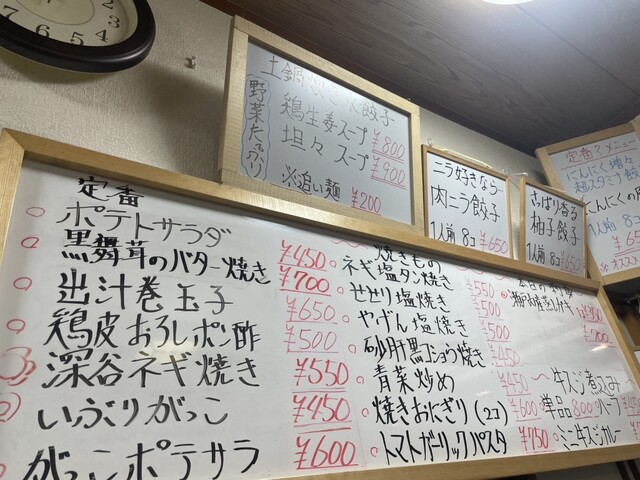 土鍋 餃子
野菜たっぷり
鶏生姜スープ ¥800
坦々スープ ¥900
※追い麺 ¥200
ニラ好きなら
肉ニラ餃子
1人前 8コ ¥650
さっぱり香る
柚子餃子
1人前 8コ ¥650
定番?メニュー
にんにく増々
超スタミナ餃
にんにくの
¥650
定番
ポテトサラダ ¥450
黒舞茸のバター焼き ¥700
出汁巻玉子 ¥650
鶏皮おろしポン酢 ¥500
深谷ネギ焼き ¥550
いぶりがっこ ¥450
がっこポテサラ ¥600
焼きもの
ネギ塩タン焼き
せせり塩焼き ¥500
やげん塩焼き ¥500
砂肝黒コショウ焼き ¥450
青菜炒め ¥450
焼きおにぎり(2コ) ¥600
トマトガーリックパスタ ¥750
牛スジ煮込み
単品 800 ハーフ
ミニ牛スジカレー